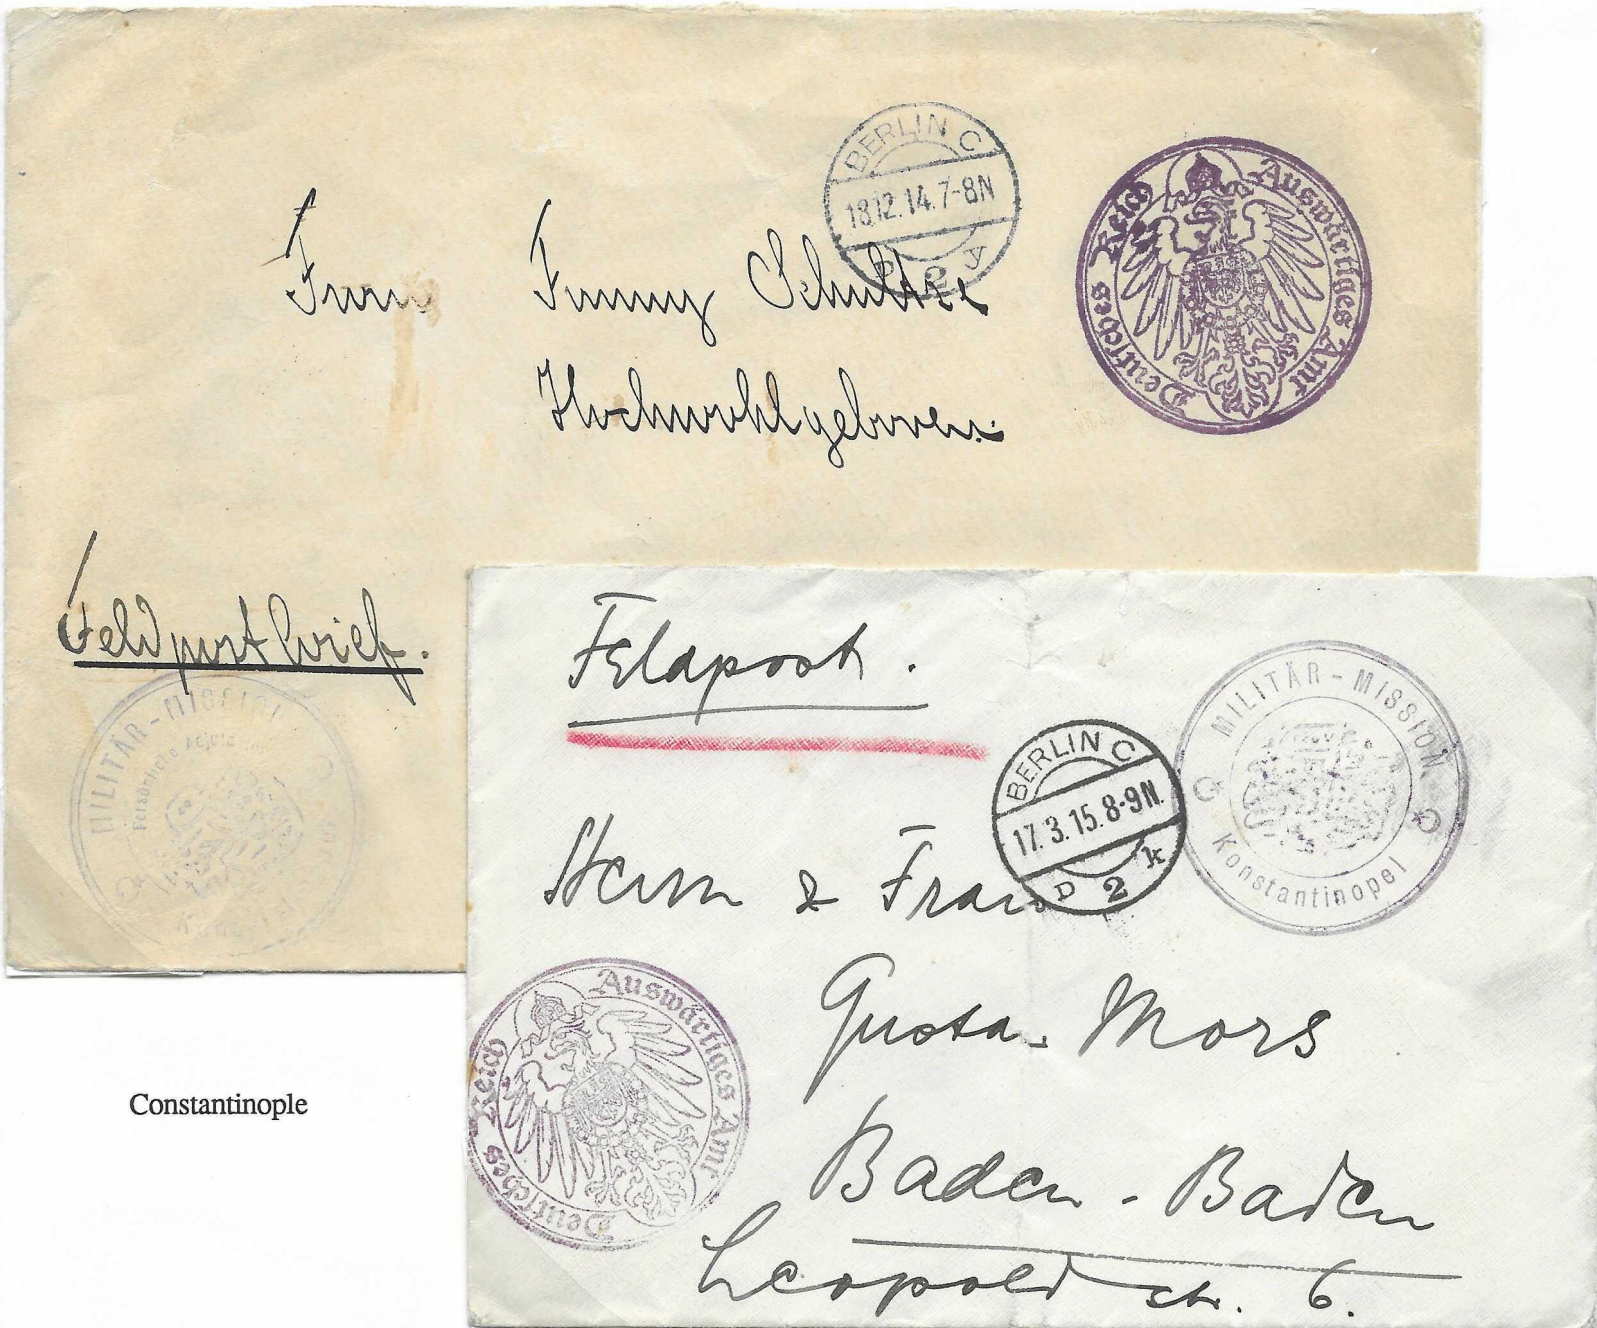 BERLIN C
18.12.14.7-8N
2 y
Deutsches Reich Auswärtiges Amt
Frau Fanny Schultze
Hochwohlgeboren.
Feldpostbrief.
MILITÄR-MISSION
Persönliche
Feldpost.
BERLIN C
17.3.15.8-9N.
D 2 k
MILITÄR-MISSION
Konstantinopel
Herrn & Frau
Gustav Mors
Baden-Baden
Leopoldstr. 6.
Deutsches Reich Auswärtiges Amt
Constantinople